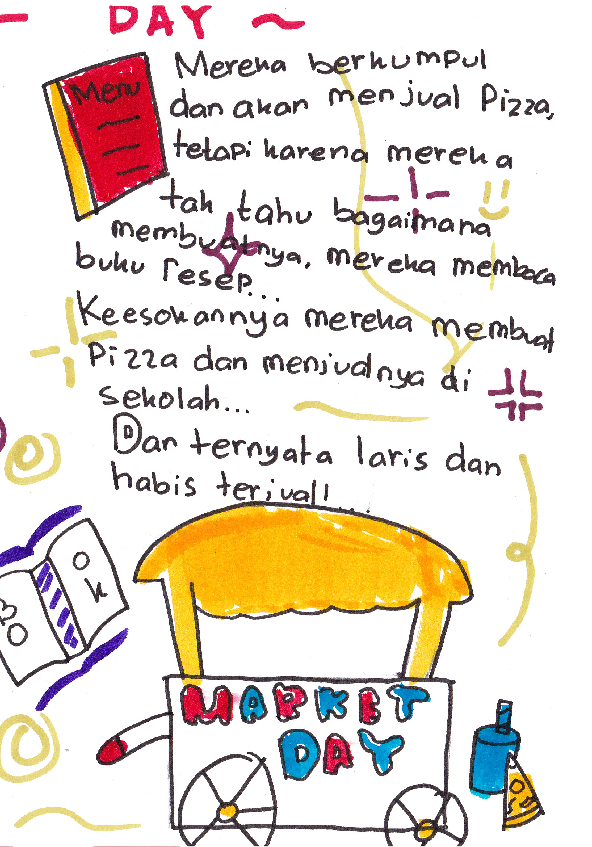 DAY ~
Menu
Mereka berkumpul
dan akan menjual Pizza,
tetapi karena mereka
tak tahu bagaimana
membuatnya, mereka membaca
buku resep...
Keesokannya mereka membuat
Pizza dan menjualnya di
sekolah...
Dan ternyata laris dan
habis terjual!...
BO
OK
MARKET
DAY